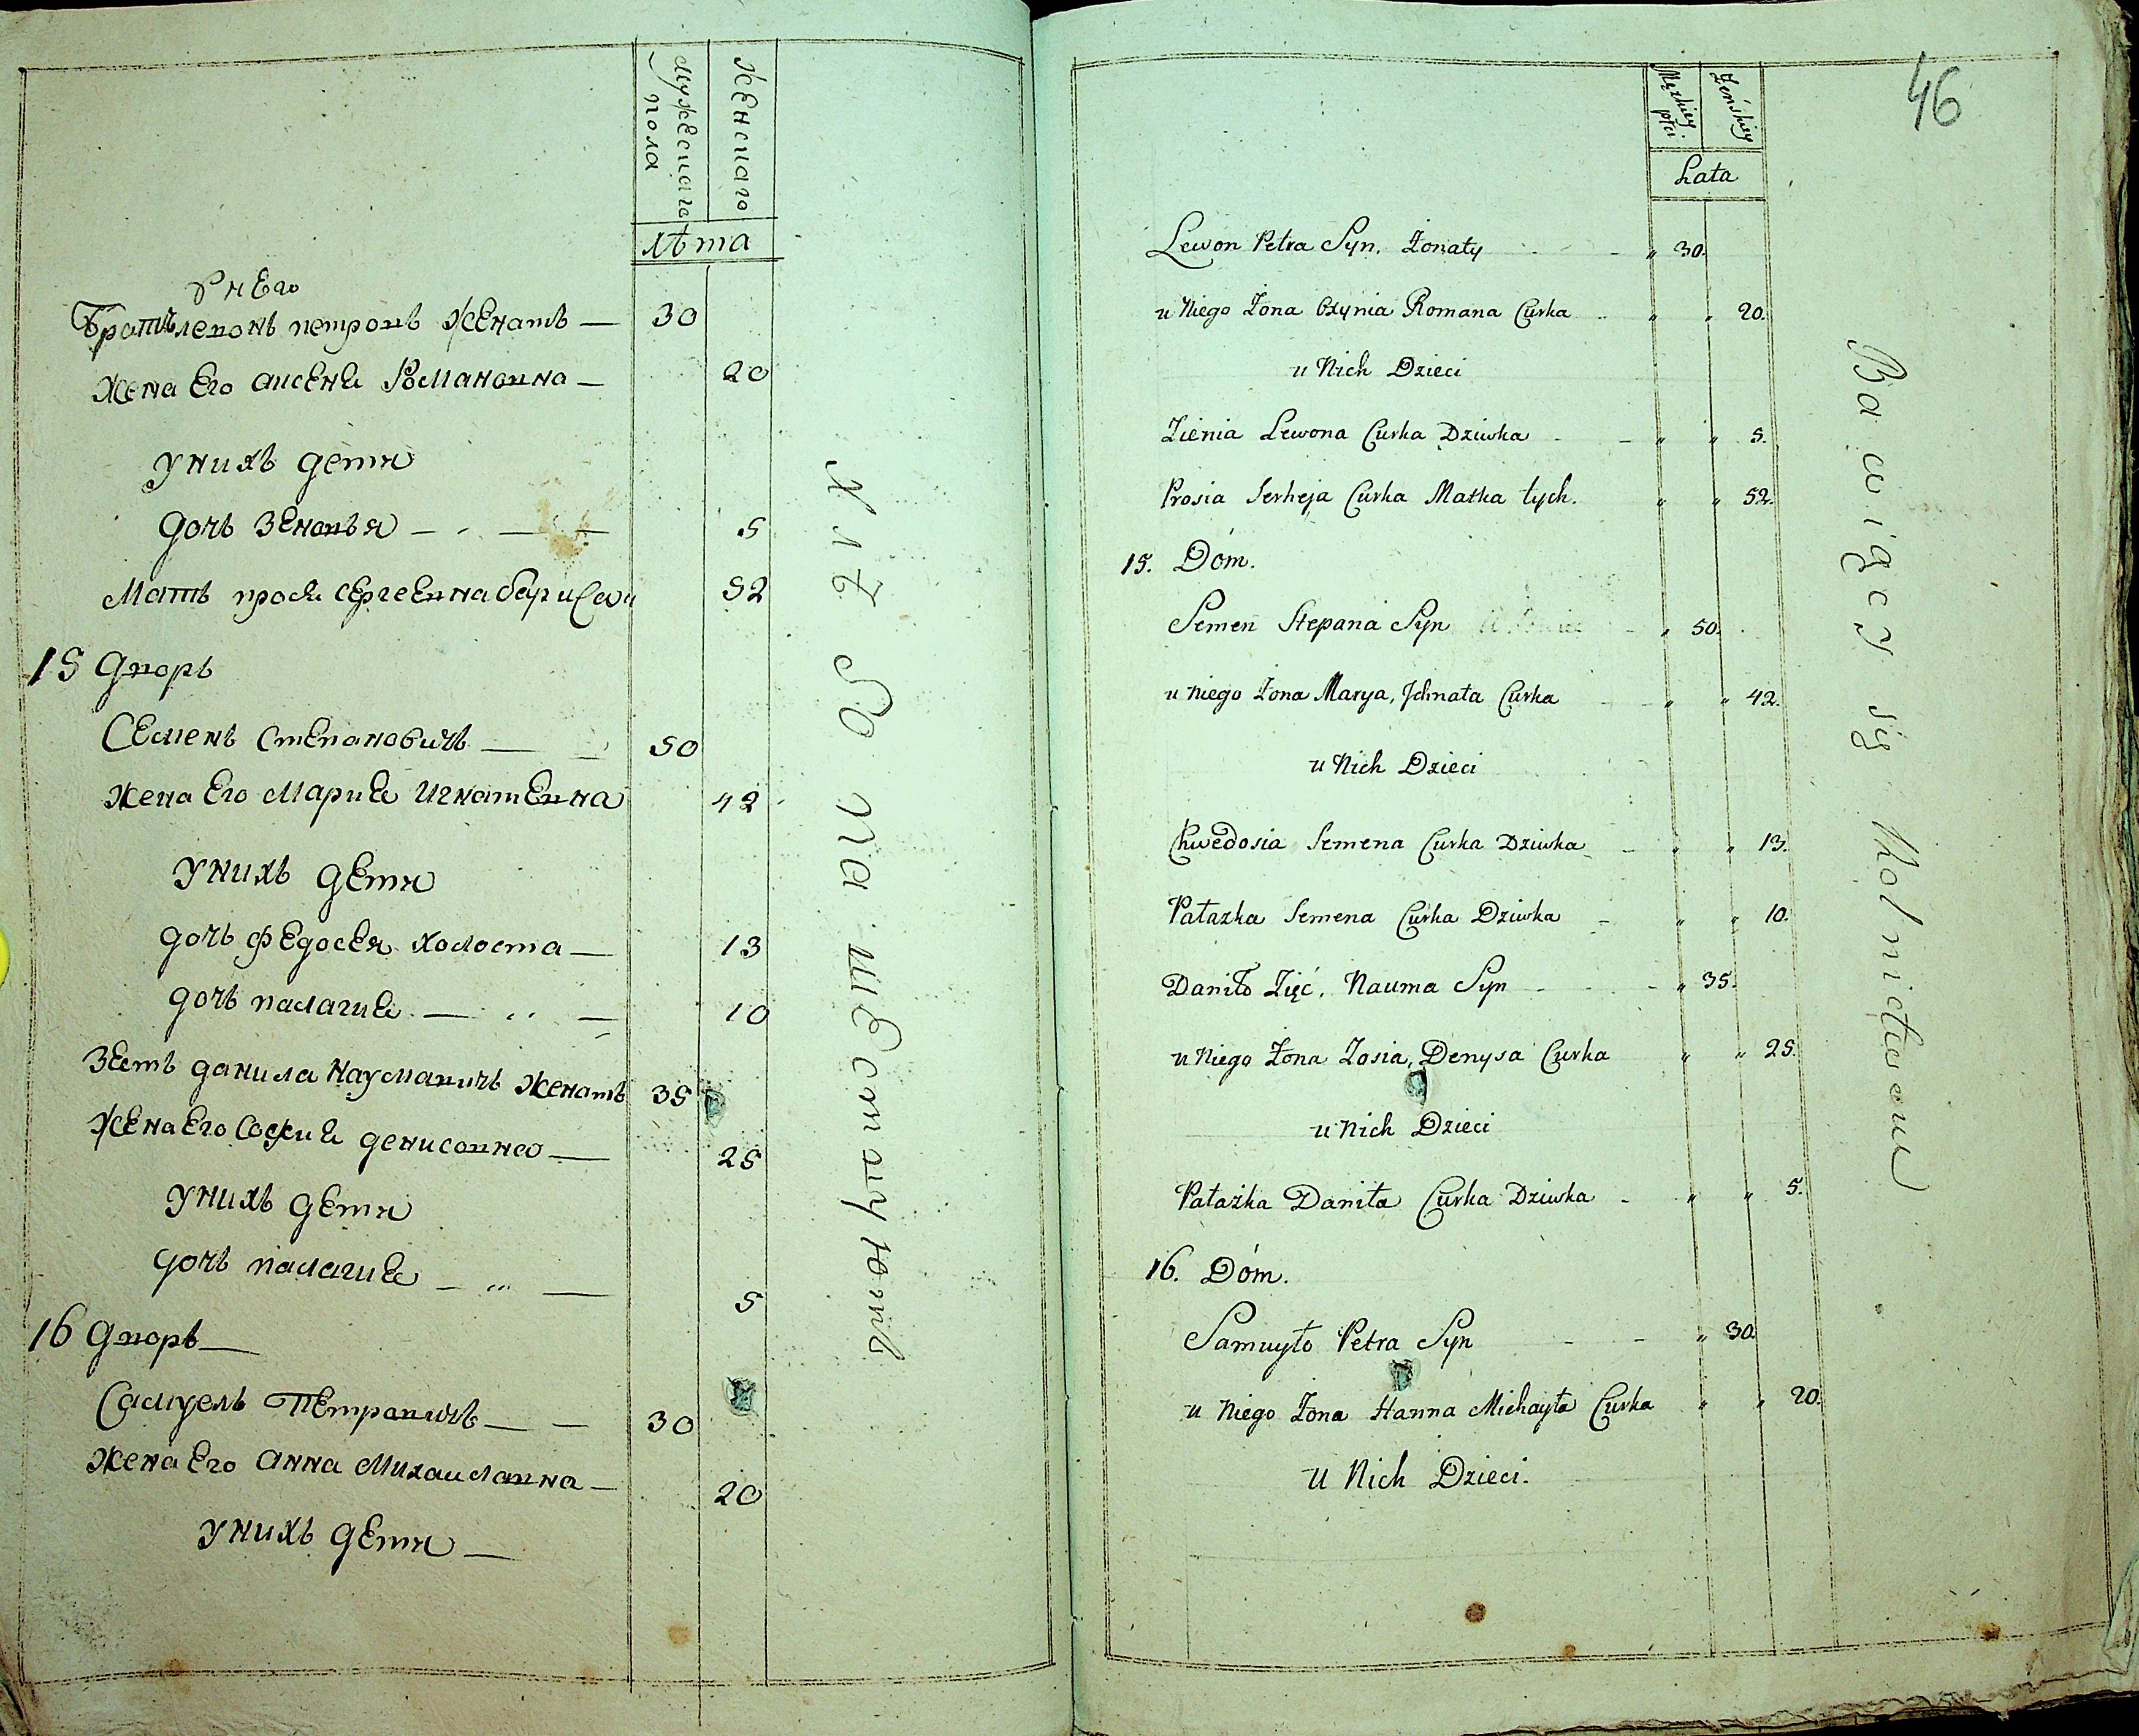 Мужескаго пола
Женскаго
Лѣта
У него
братъ левонъ петровъ женатъ — 30
жена Его аксенѣя Романовна — 20
у нихъ дети
дочь Зеновъя — 5
Мать прося сергеевна 52
15 дворъ
Семенъ Степановичъ — 50
жена Его Мария Игнатевна 42
у нихъ дети
дочь федосея холоста — 13
дочь палагия — 10
Зеть данила Наумавичъ женатъ 35
жена Его София денисовна — 25
у нихъ дети
дочь палагия — 5
16 дворъ —
Самуель Петравичъ — 30
жена Его анна Михаиловна — 20
у нихъ дети —
46
Męzkiey płci
Żeńskiey
Lata
Lewon Petra Syn. Żonaty " 30.
u Niego Żona Oxynia Romana Curka " " 20.
u Nich Dzieci
Zienia Lewona Curka Dziwka " " 5.
Prosia Serheja Curka Matka tych. " " 52.
15. Dom.
Semen Stepana Syn " 50.
u niego Żona Marya, Jchnata Curka " " 42.
u Nich Dzieci
Chwedosia Semena Curka Dziwka " " 13.
Pałazka Semena Curka Dziwka " " 10.
Daniło Zięć. Nauma Syn " 35.
u Niego Żona Zosia, Denysa Curka " " 25.
u Nich Dzieci
Pałażka Daniła Curka Dziwka " " 5.
16. Dom.
Samuyło Petra Syn " 30.
u Niego Żona Hanna Michayła Curka " " 20.
u Nich Dzieci.
Bawiący się Rolnictwem